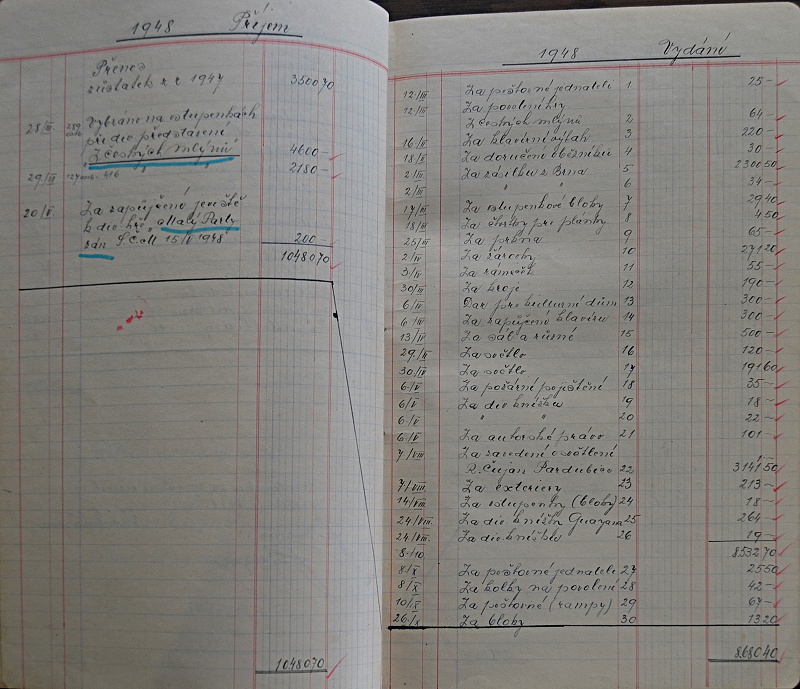 1948 Příjem
Přenos
zůstatek z r 1947 350070
28/III. Vybráno na vstupenkách
při div. představení
"Z Českých mlýnů" 4600-
29/III 2180-
20/V. Za zapůjčení jeviště
k div. hře „Malý Party
zán" 15/V 1948 200-
1048070
1048070
1948 Vydání
12./III Za poštovné jednateli 1 25-
12./III Za povolení hry
Z Českých mlýnů 2 64-
16/II Za klavírní výtah 3 220-
18/II Za doručení oběžníků 4 30-
2/III Za zásilku z Brna 5 230050
2/III " " 6 34-
17/III Za vstupenkové bloky 7 2940
18/III Za pro plánky 8 450
25/III Za prkna 9 65-
2/IV Za zárochy 10 27120
3/IV Za 11 55-
30/III Za kroje 12 190-
6/IV Dar pro kulturní dům 13 300-
6/IV Za zapůjčení klavíru 14 300-
13/IV Za sál a různé 15 500-
29/II Za světlo 16 120-
30/IV Za světlo 17 19160
6/V Za požární pojištění 18 35-
6/V Za div. knížku 19 18-
6/V " " 20 22-
6/V Za autorské právo 21 101-
7/VIII Za zavedení osvětlení
R. Čujan Pardubice 22 314150
7/VIII. Za exteriery 23 213-
14/VIII Za vstupenky (bloky) 24 18-
24/VIII. Za div. knížku Guayana 25 264-
24/VIII. Za div. knížku 26 19-
8./10 853270
8/X Za poštovné jednateli 27 2550
8/X Za kolky na povolení 28 42-
10/X Za poštovné (rampy) 29 67-
26./X Za bloky 30 1320
868040